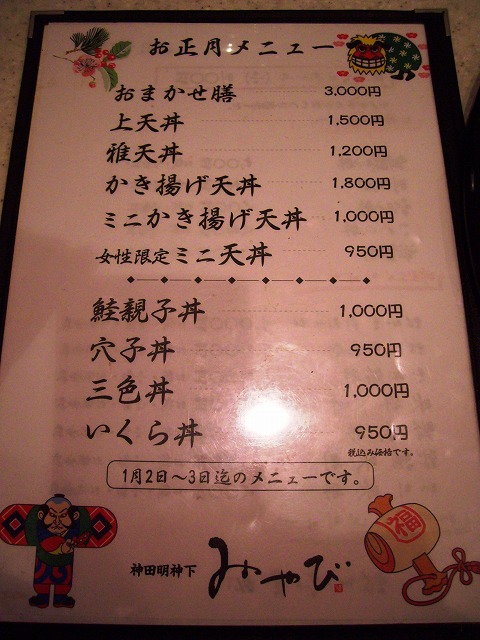 お正月メニュー
おまかせ膳 3,000円
上天丼 1,500円
雅天丼 1,200円
かき揚げ天丼 1,800円
ミニかき揚げ天丼 1,000円
女性限定ミニ天丼 950円
鮭親子丼 1,000円
穴子丼 950円
三色丼 1,000円
いくら丼 950円
税込み価格です。
1月2日～3日迄のメニューです。
福
神田明神下 みやび